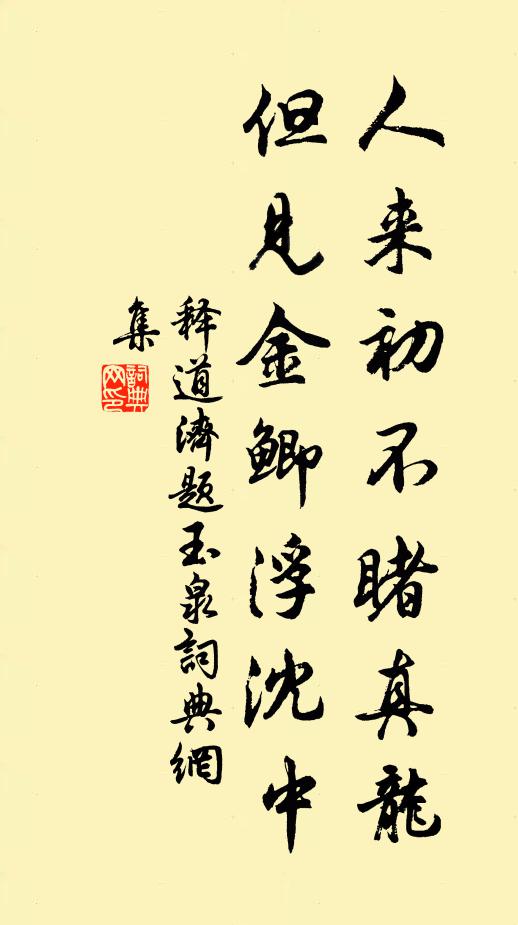 人来初不睹真龍
但見金鯽浮沈中
释道濟题玉泉詞典網
集
詞典
网印